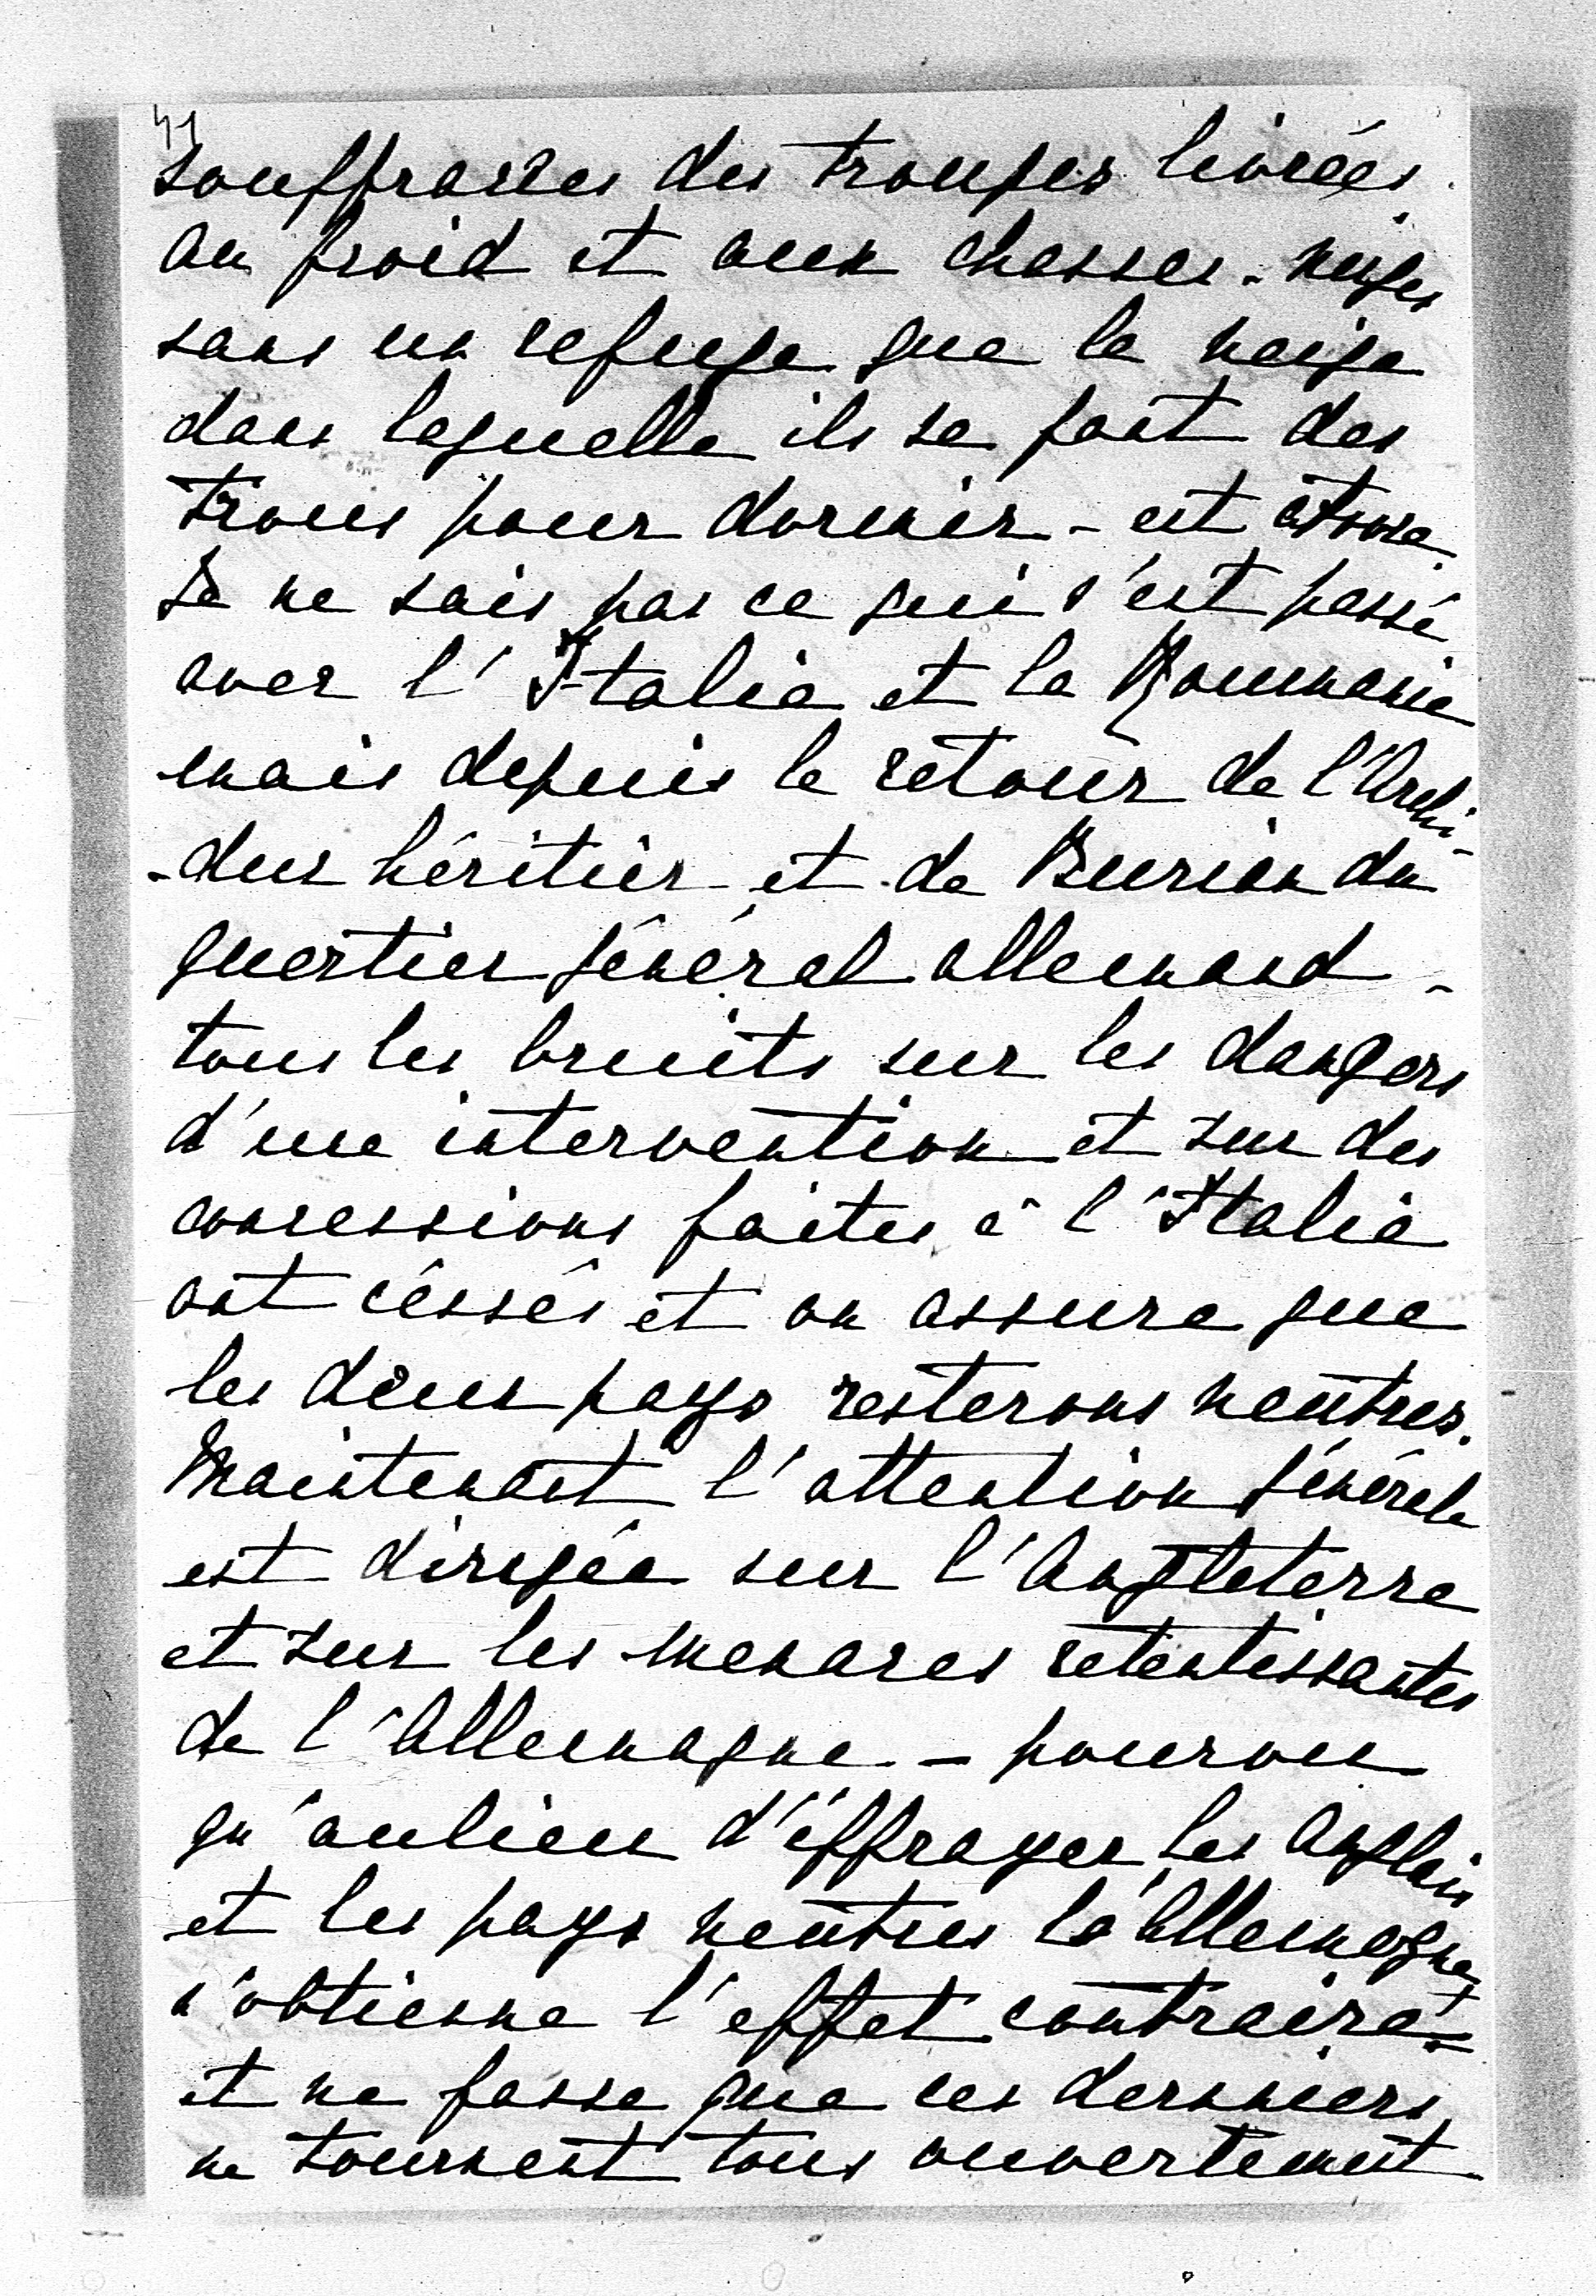 41
souffrances des troupes livrées
au froid et aux chasses-neiges
sans un refuge que la neige
dans laquelle ils se font des
trous pour dormir - est atroce.
Je ne sais pas ce qui s'est passé
avec l'Italie et la Roumanie
mais depuis le retour de l'Archi-
-duc héritier et de Burian du
quartier général allemand -
tous les bruits sur les dangers
d'une intervention et sur des
concessions faites à l'Italie
ont céssés et on assure que
les deux pays resterons neutres.
Maintenant l'attention générale
est dirigée sur l'Angleterre
et sur les menaces retentissantes
de l'Allemagne - pourvu
qu'aulieu d'éffrayer les Anglais
et les pays neutres l'Allemagne
n'obtienne l'effet contraire -
et ne fasse que ces derniers
ne tournent tous ouvertement